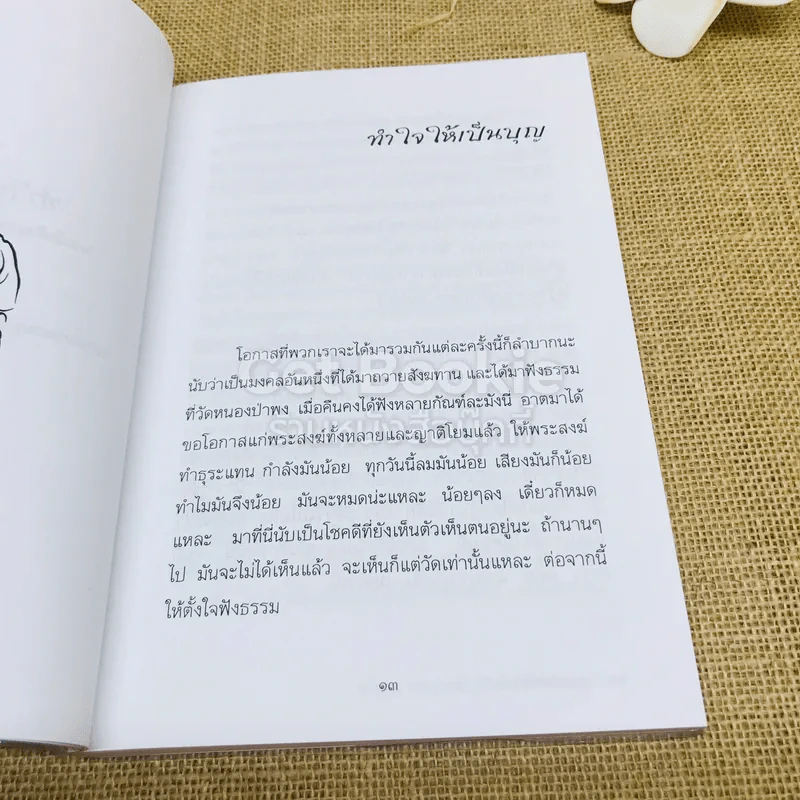 ทำใจให้เป็นบุญ
โอกาสที่พวกเราจะได้มารวมกันแต่ละครั้งนี้ก็ลำบากนะ
นับว่าเป็นมงคลอันหนึ่งที่ได้มาถวายสังฆทาน และได้มาฟังธรรม
ที่วัดหนองป่าพง เมื่อคืนคงได้ฟังหลายกัณฑ์ละมังนี่ อาตมาได้
ขอโอกาสแก่พระสงฆ์ทั้งหลายและญาติโยมแล้ว ให้พระสงฆ์
ทำธุระแทน กำลังมันน้อย ทุกวันนี้ลมมันน้อย เสียงมันก็น้อย
ทำไมมันจึงน้อย มันจะหมดน่ะแหละ น้อยๆลง เดี๋ยวก็หมด
แหละ มาที่นี่นับเป็นโชคดีที่ยังเห็นตัวเห็นตนอยู่นะ ถ้านานๆ
ไป มันจะไม่ได้เห็นแล้ว จะเห็นก็แต่วัดเท่านั้นแหละ ต่อจากนี้
ให้ตั้งใจฟังธรรม
๑๓
Get Bookie